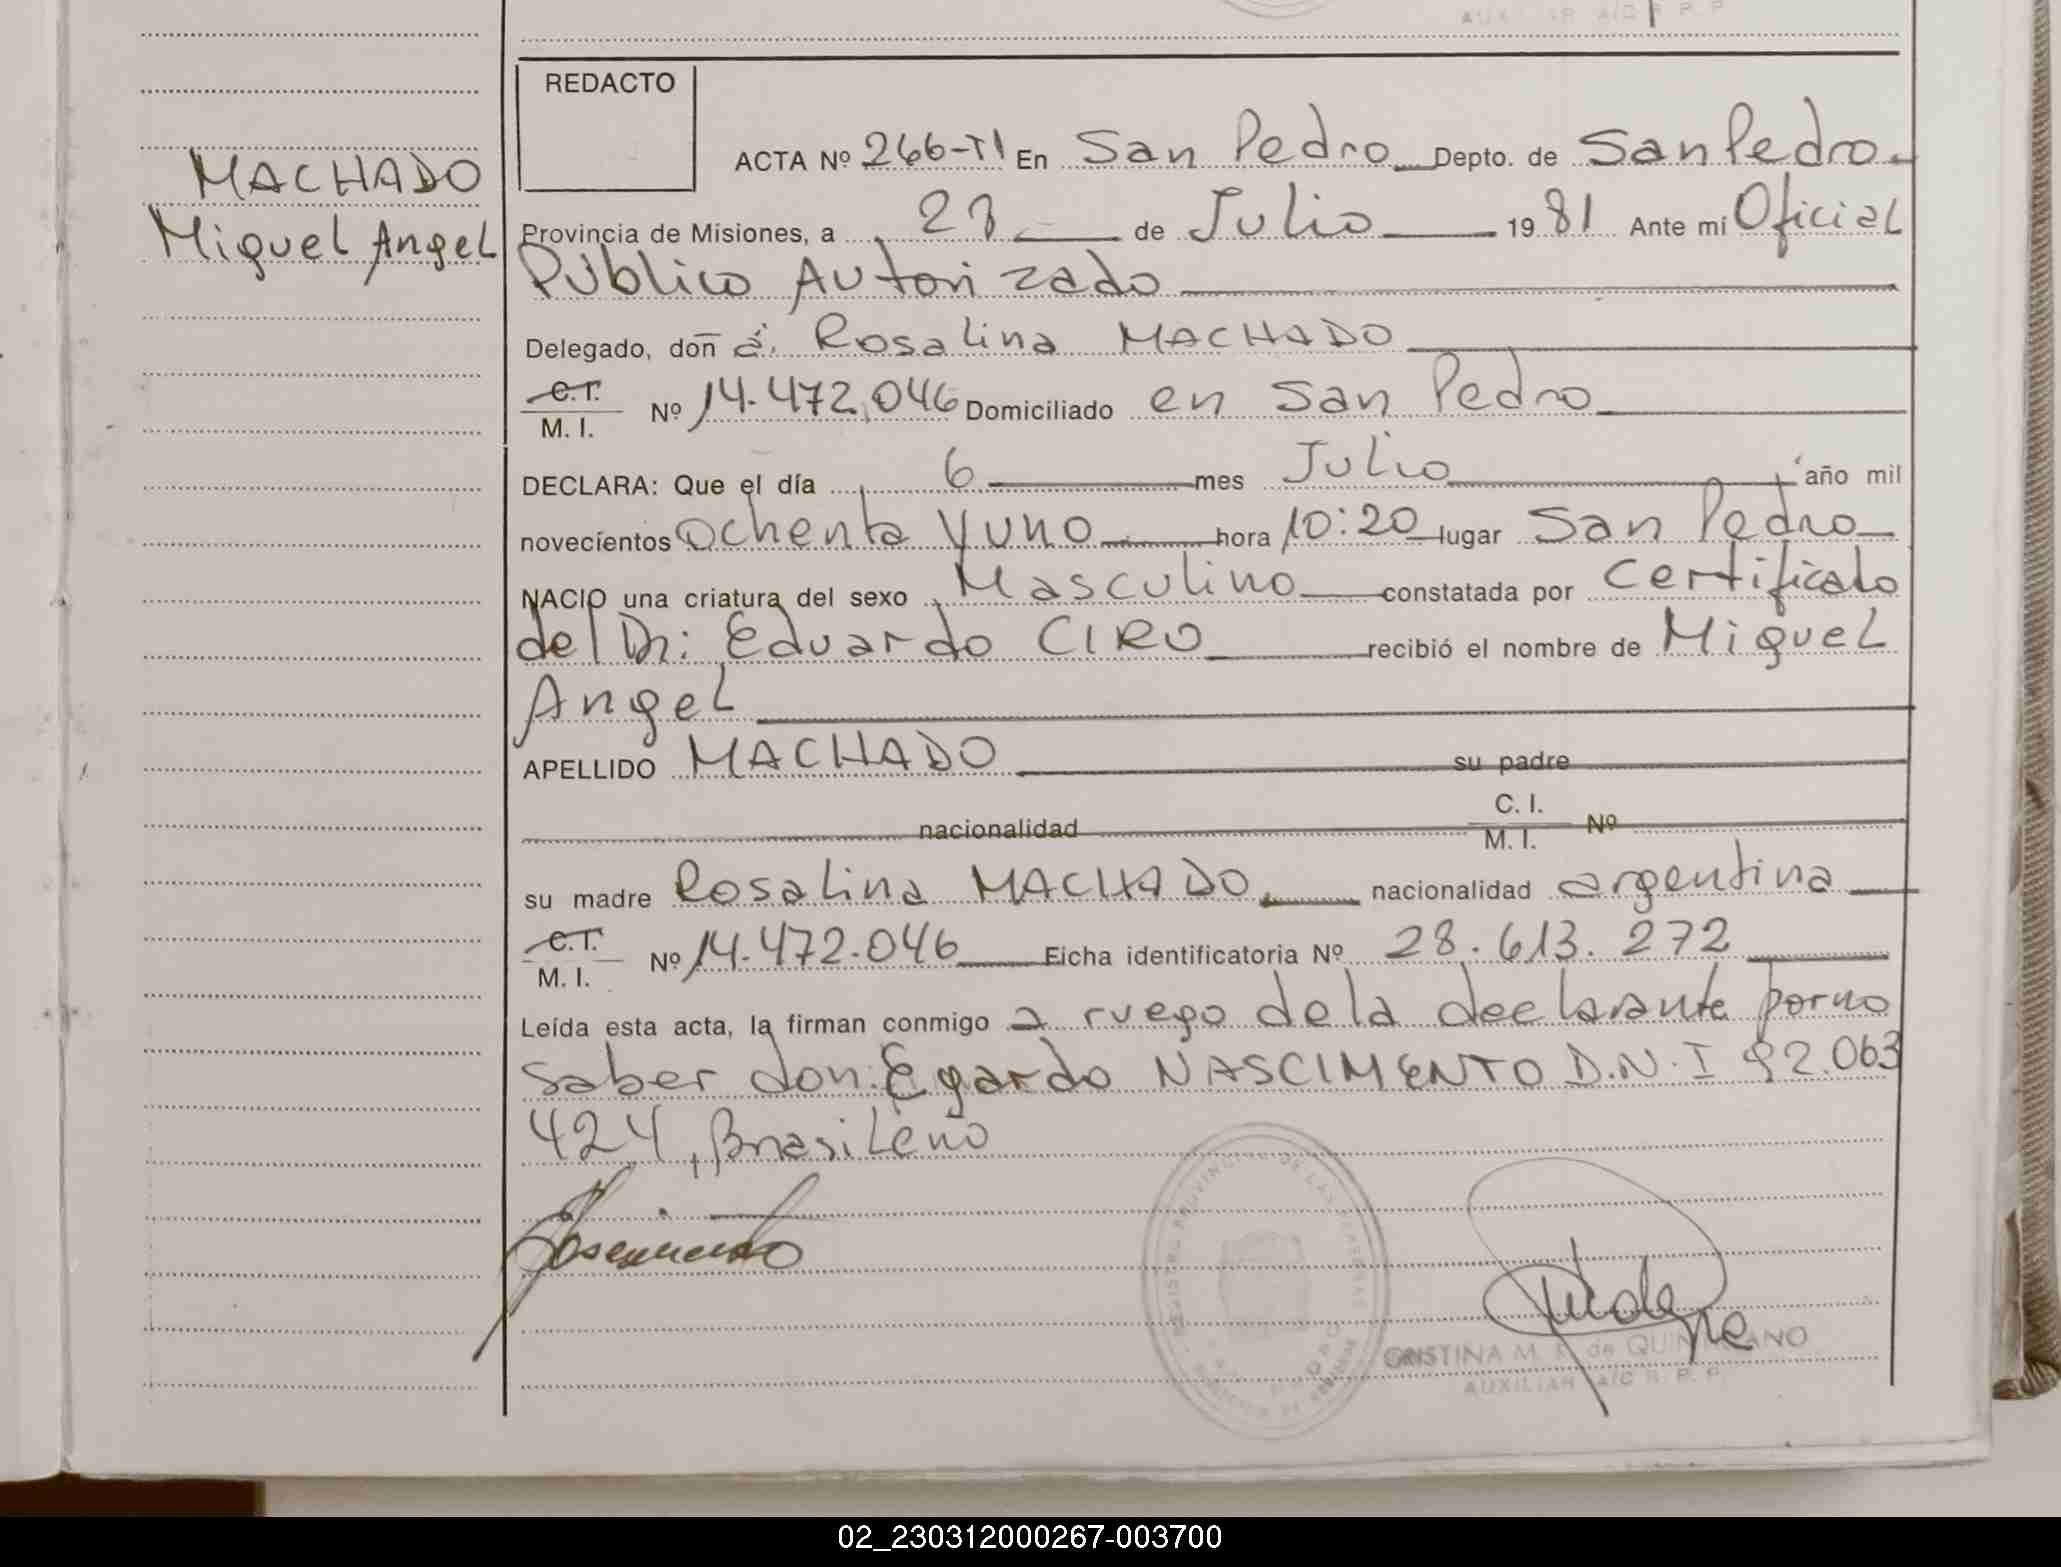 AUXILIAR A/C R. P. P.
REDACTO
ACTA Nº 266-TI En San Pedro Depto. de San Pedro
MACHADO
Miguel Angel
Provincia de Misiones, a 28 de Julio 1981 Ante mí Oficial
Público Autorizado
Delegado, doña. Rosalina MACHADO
C.I.
M. I. Nº 14.472.046 Domiciliado en San Pedro
DECLARA: Que el día 6 mes Julio año mil
novecientos Ochenta Yuno hora 10:20 lugar San Pedro
NACIO una criatura del sexo Masculino constatada por Certificado
del Dr: Eduardo CIRO recibió el nombre de Miguel
Angel
APELLIDO MACHADO su padre
nacionalidad C. I.
M. I. Nº
su madre Rosalina MACHADO nacionalidad argentina
C.I.
M. I. Nº 14.472.046 Ficha identificatoria Nº 28.613.272
Leída esta acta, la firman conmigo a ruego de la declarante por no
saber don: Egardo NASCIMENTO D.N.I 92.063
424, Brasileño
Nascimento
REGISTRO PROVINCIAL DE LAS PERSONAS
CRISTINA M. de
AUXILIAR A/C R. P. P.
02_230312000267-003700